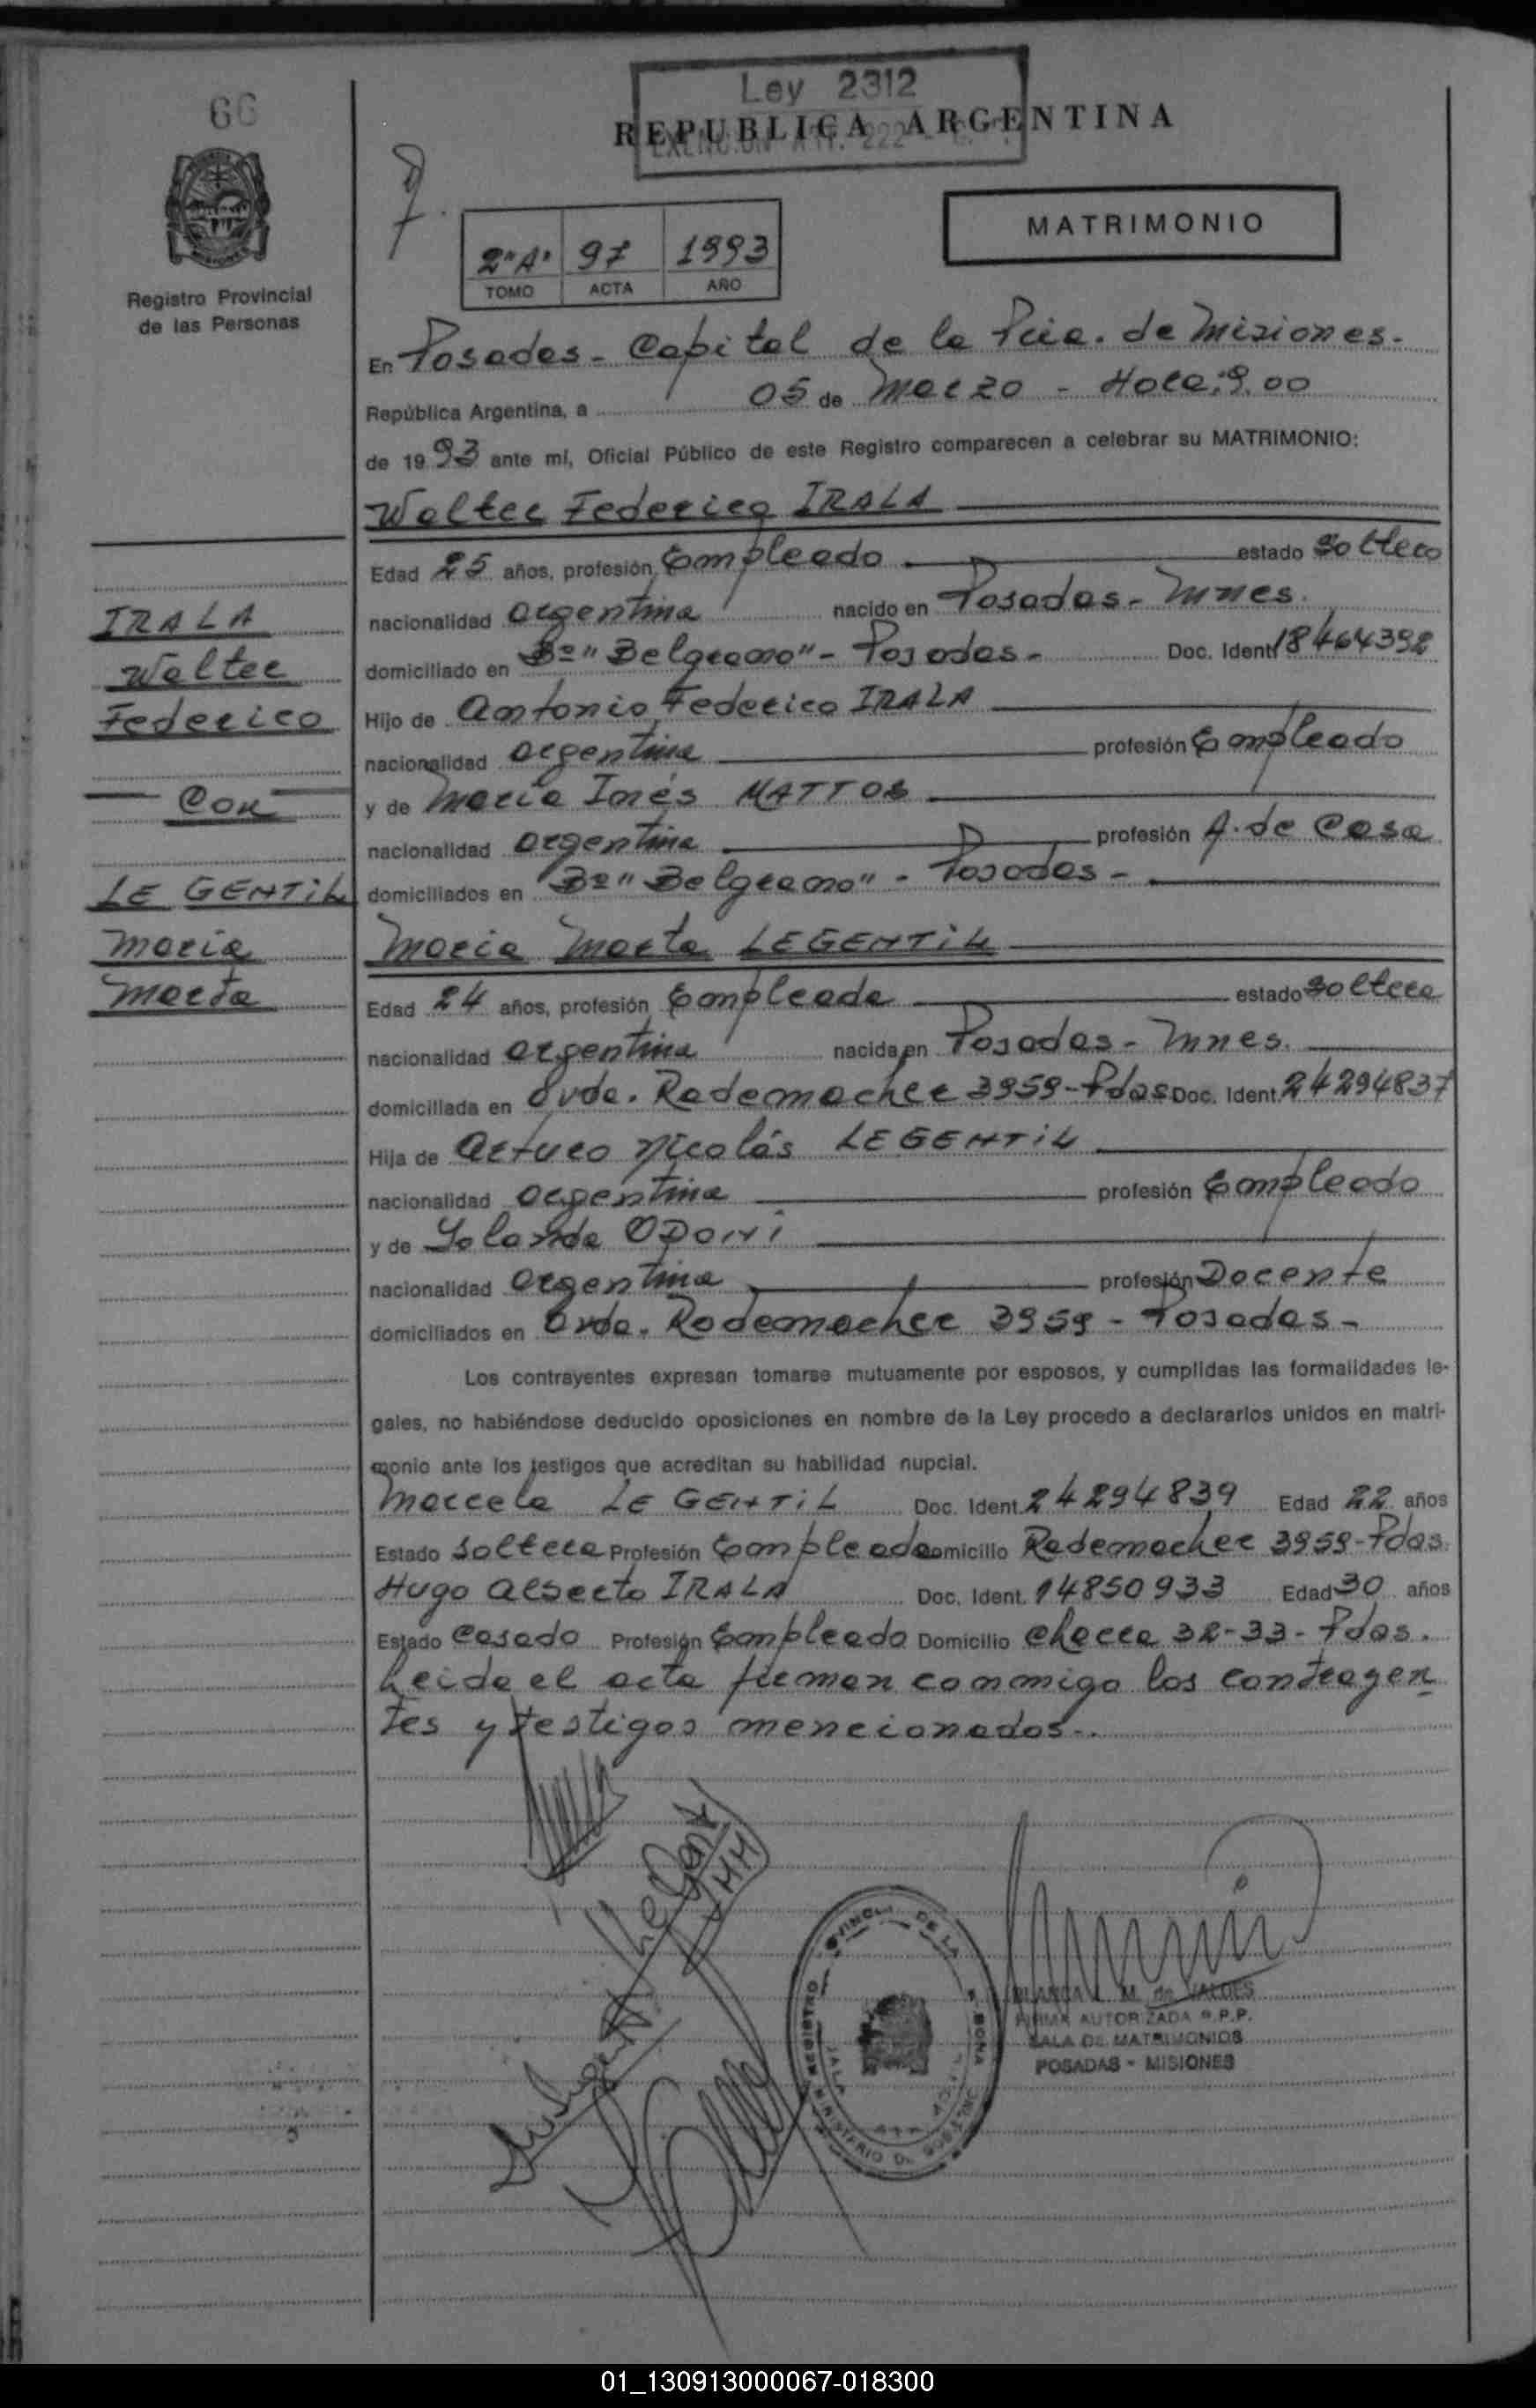 66
Ley 2312
REPUBLICA ARGENTINA
EXENCION ART. 222
MATRIMONIO
2"A" 97 1993
TOMO ACTA AÑO
Registro Provincial
de las Personas
En Posadas - Capital de la Pcia. de Misiones.-
República Argentina, a 05 de Marzo - Hora: 9.00
de 1993 ante mí, Oficial Público de este Registro comparecen a celebrar su MATRIMONIO:
Walter Federico IRALA
Edad 25 años, profesión Empleado estado Soltero
nacionalidad argentina nacido en Posadas - Mnes.
domiciliado en Bº "Belgrano" - Posadas - Doc. Ident. 18464392
Hijo de Antonio Federico IRALA
nacionalidad argentina profesión Empleado
y de María Inés MATTOS
nacionalidad argentina profesión A. de Casa
domiciliados en Bº "Belgrano" - Posadas -
María Marta LE GENTIL
Edad 24 años, profesión Empleada estado Soltera
nacionalidad argentina nacida en Posadas - Mnes.
domiciliada en Avda. Rademacher 3959 - Pdas Doc. Ident. 24294837
Hija de Arturo Nicolás LE GENTIL
nacionalidad argentina profesión Empleado
y de Yolanda ODONI
nacionalidad argentina profesión Docente
domiciliados en Avda. Rademacher 3959 - Posadas -
Los contrayentes expresan tomarse mutuamente por esposos, y cumplidas las formalidades le-
gales, no habiéndose deducido oposiciones en nombre de la Ley procedo a declararlos unidos en matri-
monio ante los testigos que acreditan su habilidad nupcial.
Marcela LE GENTIL Doc. Ident. 24294839 Edad 22 años
Estado Soltera Profesión Empleada Domicilio Rademacher 3959 - Pdas.
Hugo Alberto IRALA Doc. Ident. 14850933 Edad 30 años
Estado Casado Profesión Empleado Domicilio Chacra 32-33 - Pdas.
Leida el acta firman conmigo los contrayen
tes y testigos mencionados..
IRALA
Walter
Federico
CON
LE GENTIL
María
Marta
BLANCA M. de VALDES
FIRMA AUTORIZADA R.P.P.
SALA DE MATRIMONIOS
POSADAS - MISIONES
01_130913000067-018300